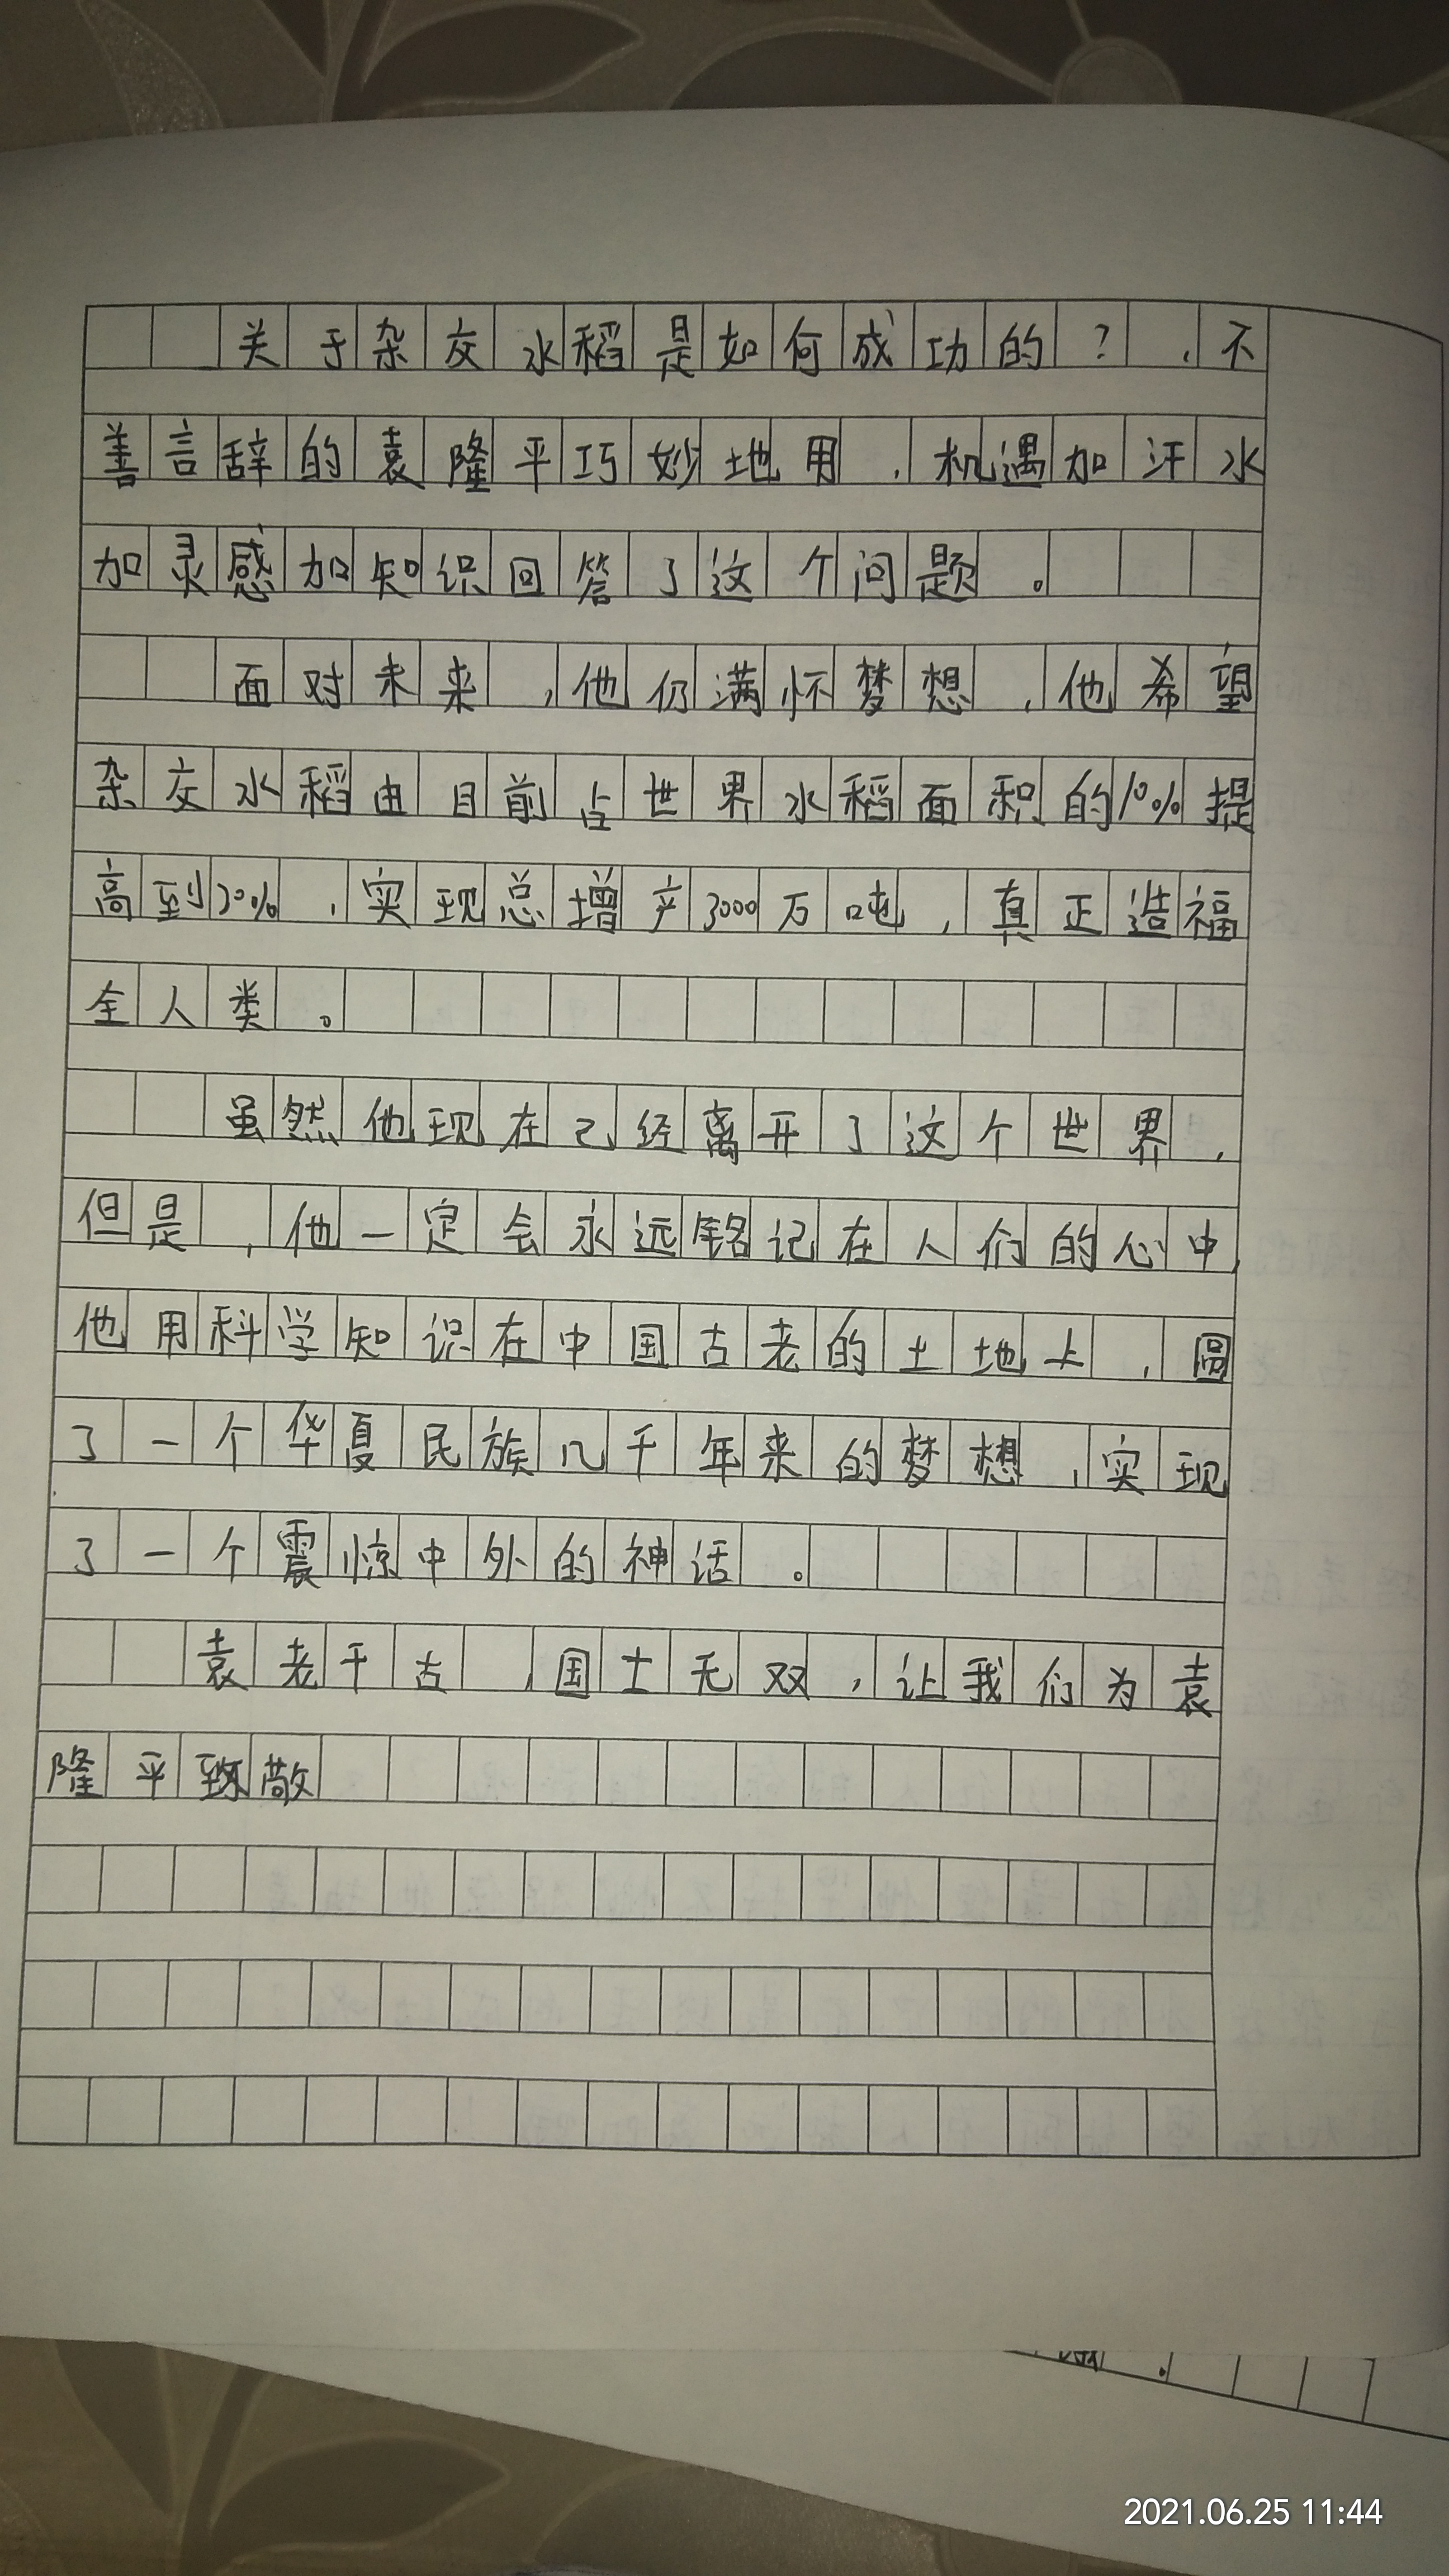 关于杂交水稻是如何成功的？，不
善言辞的袁隆平巧妙地用，机遇加汗水
加灵感加知识回答了这个问题。
面对未来，他仍满怀梦想，他希望
杂交水稻由目前占世界水稻面积的10%提
高到20%，实现总增产3000万吨，真正造福
全人类。
虽然他现在己经离开了这个世界，
但是，他一定会永远铭记在人们的心中，
他用科学知识在中国古老的土地上，圆
了一个华夏民族几千年来的梦想，实现
了一个震惊中外的神话。
袁老千古，国士无双，让我们为袁
隆平致敬
2021.06.25 11:44